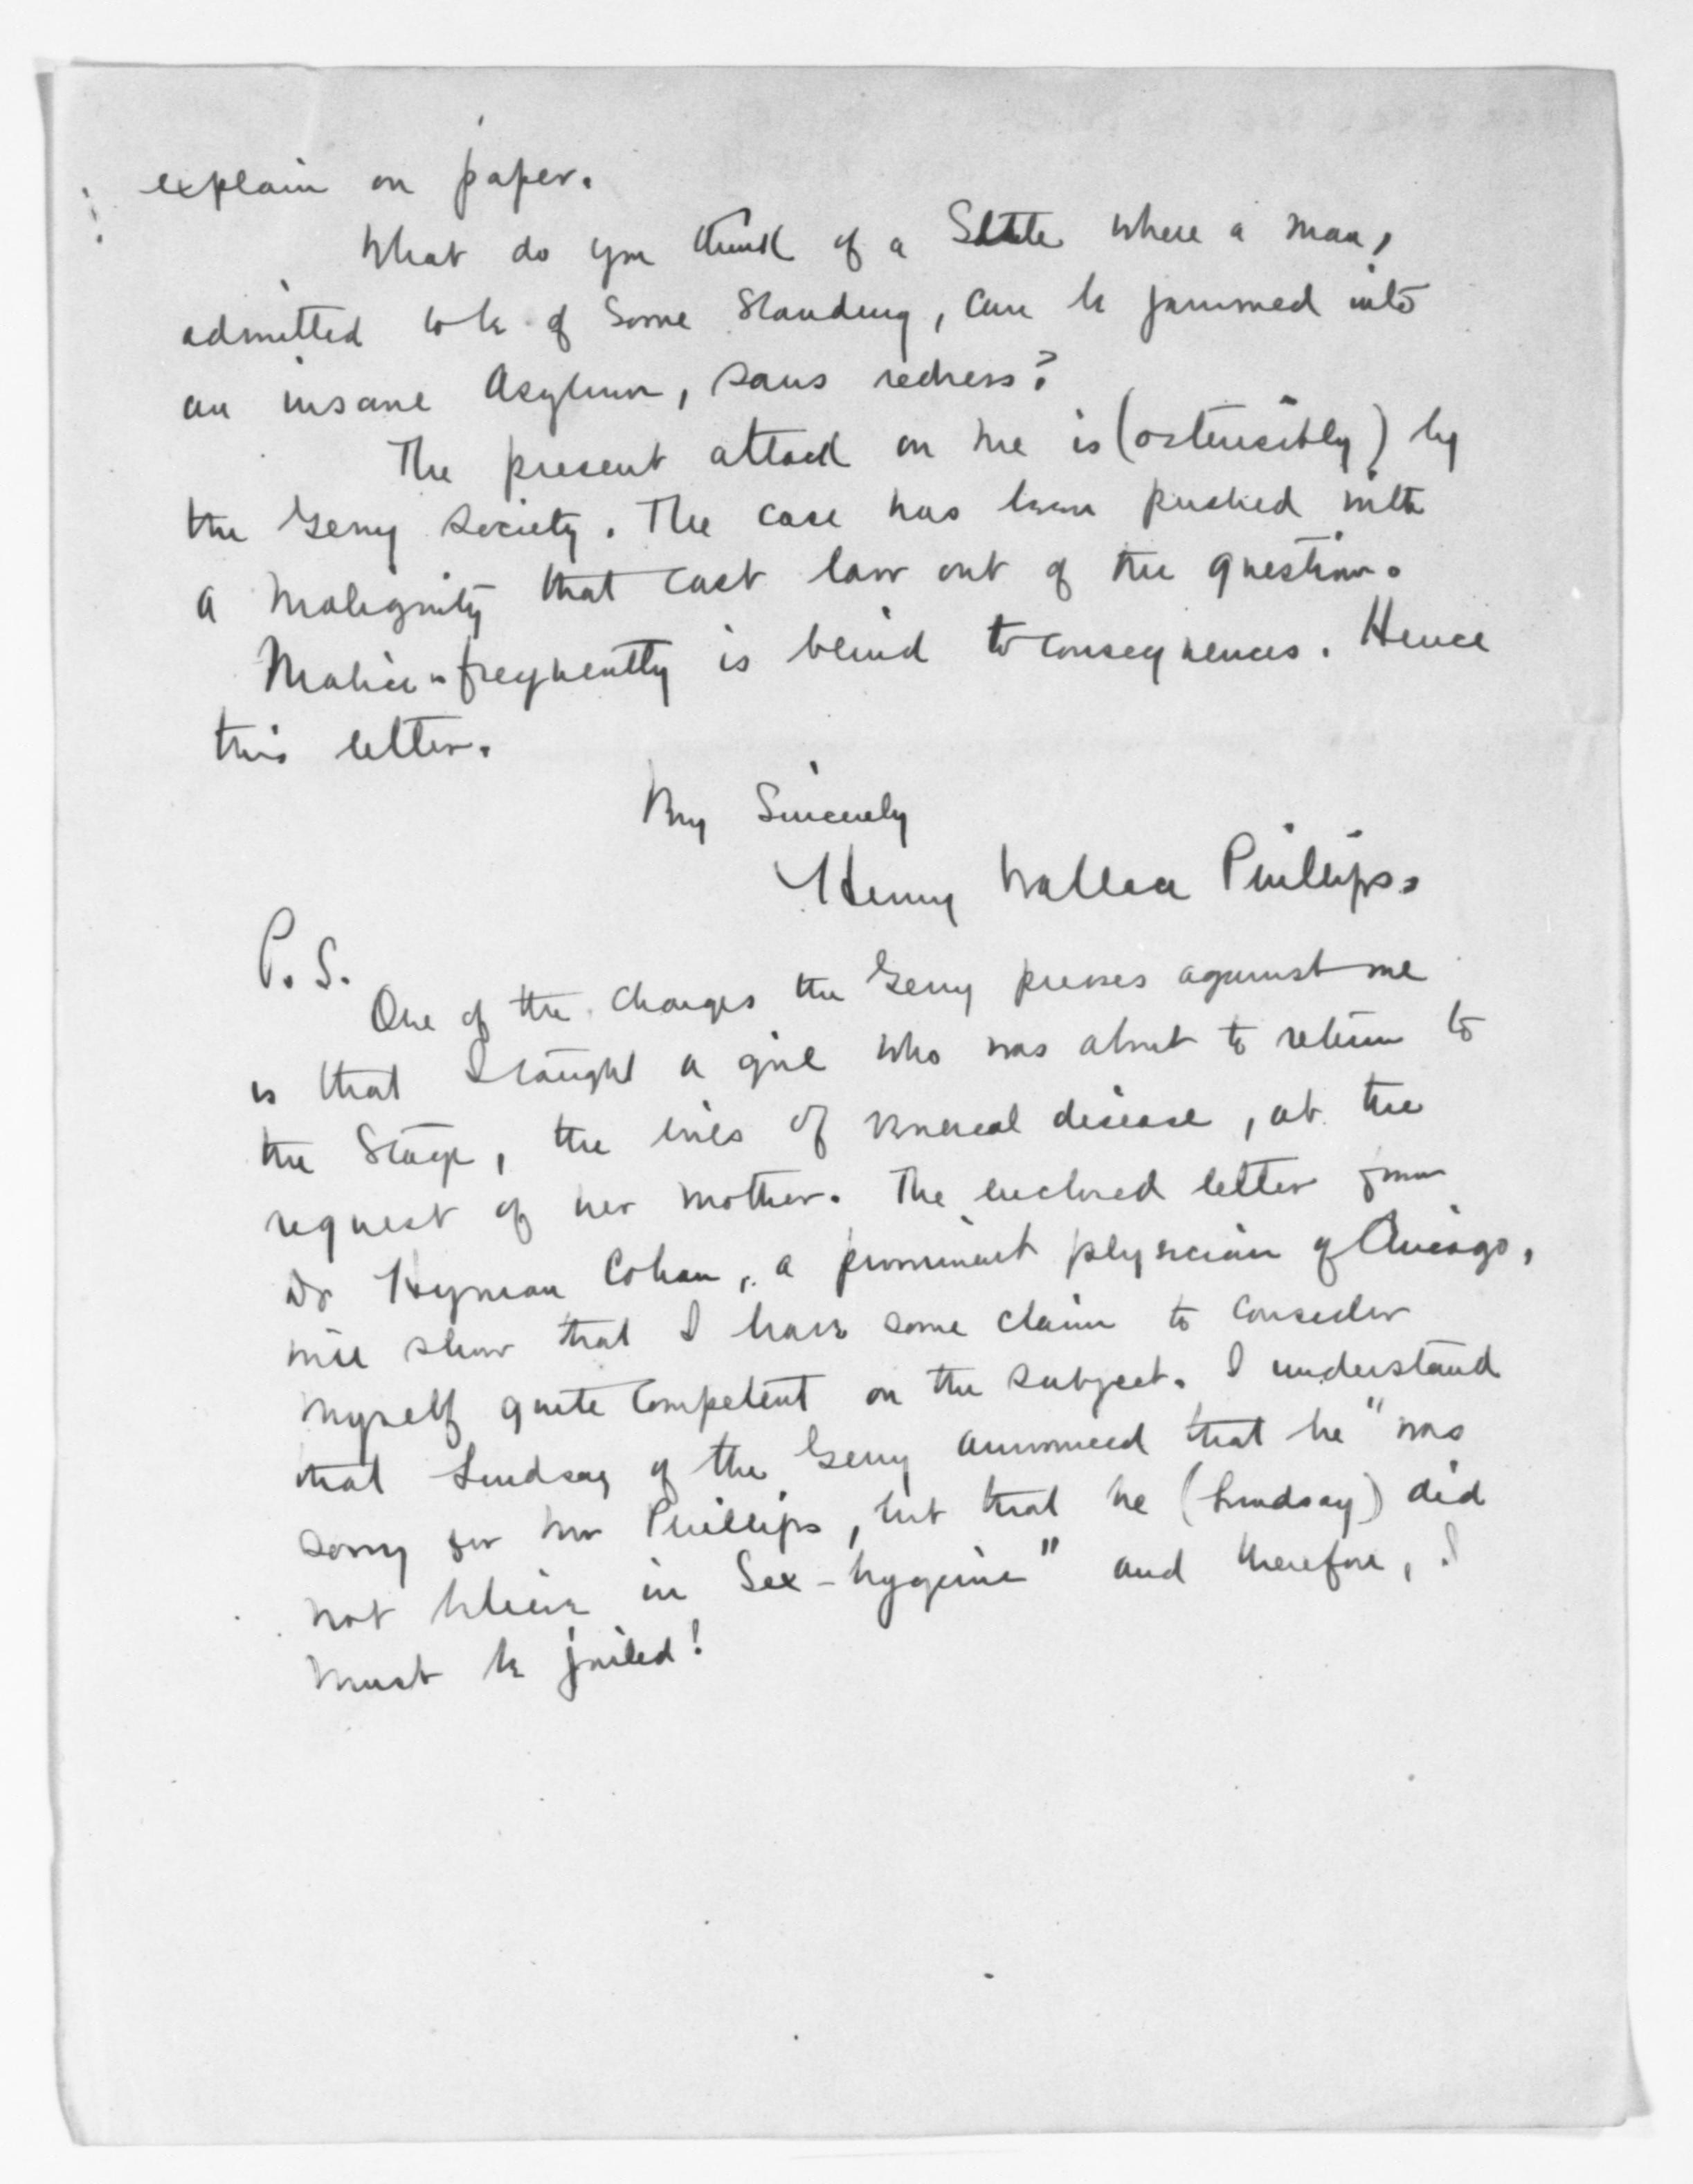 explain on paper.
What do you think of a State where a man,
admitted to be of some standing, can be jammed into
an insane Asylum, sans redress?
The present attack on me is (ostensibly) by
the Gerry Society. The case has been pushed with
a malignity that cast law out of the question.
Malice - frequently is blind to consequences. Hence
this letter.
Very Sincerely
Henry Wallace Phillips.
P.S.
One of the charges the Gerry presses against me
is that I taught a girl who was about to return to
the Stage, the evils of venereal disease, at the
request of her mother. The enclosed letter from
Dr Hyman Cohan, a prominent physician of Chicago,
will show that I have some claim to consider
myself quite competent on the subject. I understand
that Lindsay of the Gerry announced that he "was
sorry for Mr Phillips, but that he (Lindsay) did
not believe in Sex-hygeine" and therefore, I
must be jailed!